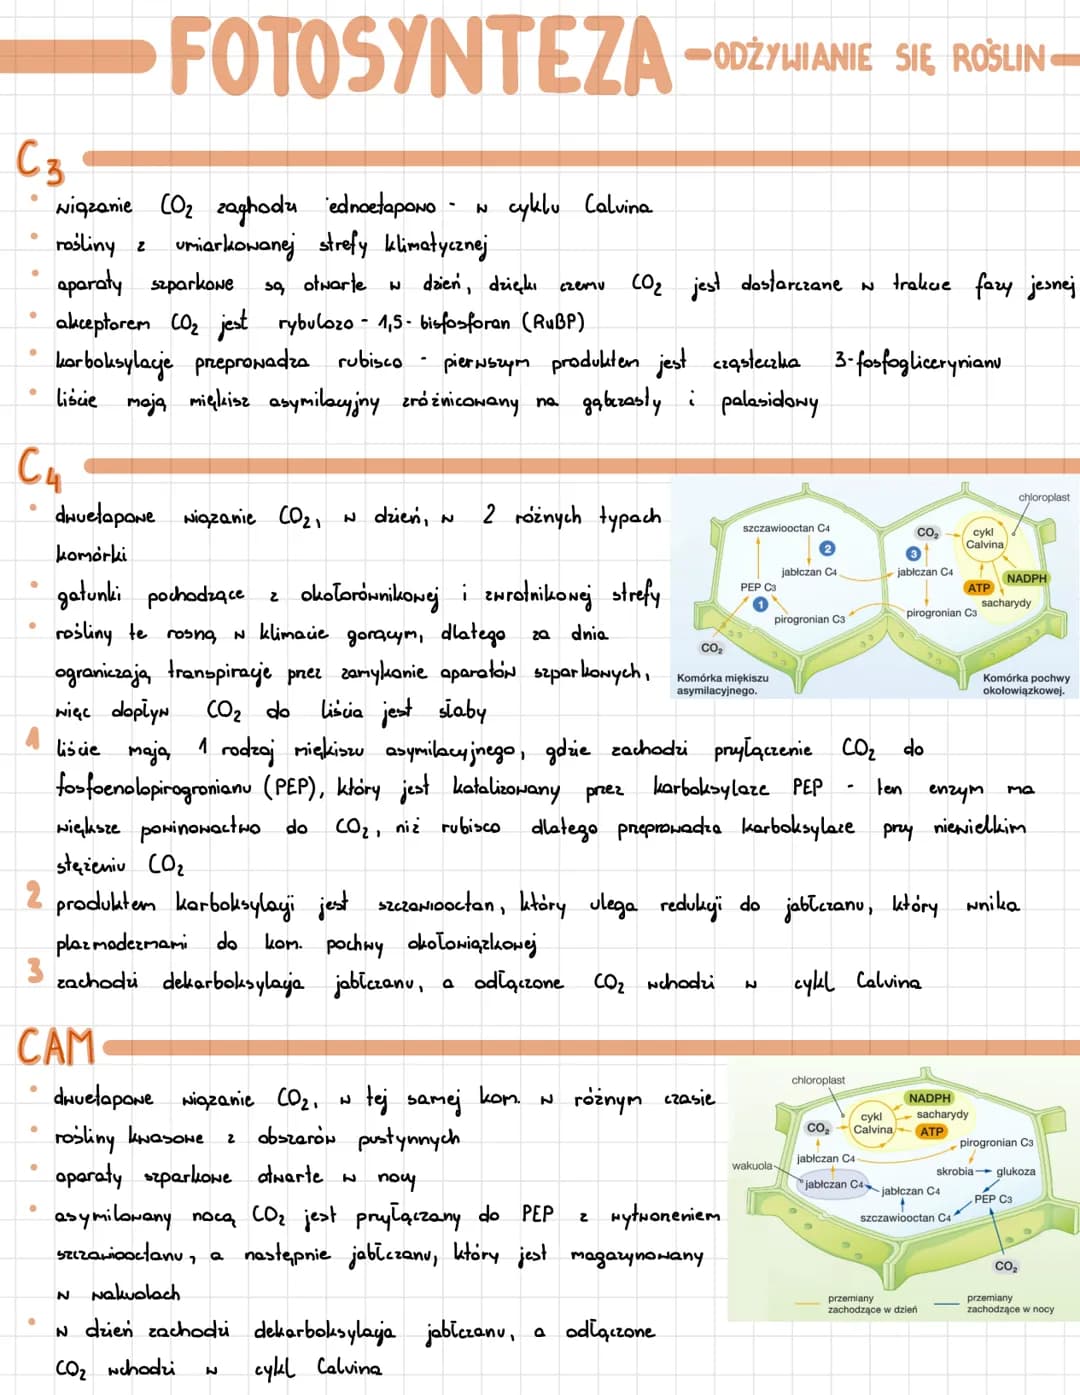 FOTOSYNTEZA - ODŻYWIANIE SIĘ ROŚLIN -
C3
• wiązanie CO2 zachodzi jednoetapowo - w cyklu Calvina
• rośliny z umiarkowanej strefy klimatycznej
• aparaty szparkowe są otwarte w dzień, dzięki czemu CO2 jest dostarczane w trakcie fazy jesnej
• akceptorem CO2 jest rybulozo - 1,5 - bisfosforan (RuBP)
• karboksylacje przeprowadza rubisco - pierwszym produktem jest cząsteczka 3-fosfoglicerynianu
• liście mają miękisz asymilacyjny zróżnicowany na gąbczasty i palisadowy
C4
• dwuetapowe wiązanie CO2, w dzień, w 2 różnych typach
komórki
• gatunki pochodzące z okołorównikowej i zwrotnikowej strefy
• rośliny te rosną w klimacie gorącym, dlatego za dnia
ograniczają transpiracje przez zamykanie aparatów szparkowych,
więc dopływ CO2 do liścia jest słaby
1 liście mają 1 rodzaj miękiszu asymilacyjnego, gdzie zachodzi przyłączenie CO2 do
fosfoenolopirogronianu (PEP), który jest katalizowany przez karboksylaze PEP - ten enzym ma
większe powinowactwo do CO2, niż rubisco dlatego przeprowadza karboksylaze przy niewielkim
stężeniu CO2
2 produktem karboksylacji jest szczawiooctan, który ulega redukcji do jabłczanu, który wnika
plazmodezmami do kom. pochwy okołowiązkowej
3 zachodzi dekarboksylacja jabłczanu, a odłączone CO2 wchodzi w cykl Calvina
chloroplast
szczawiooctan C4
CO2
cykl
Calvina
2
3
jabłczan C4
jabłczan C4
NADPH
ATP
PEP C3
sacharydy
1
pirogronian C3
pirogronian C3
CO2
Komórka miękiszu
asymilacyjnego.
Komórka pochwy
okołowiązkowej.
CAM
• dwuetapowe wiązanie CO2, w tej samej kom. w różnym czasie
• rośliny kwasowe z obszarów pustynnych
• aparaty szparkowe otwarte w nocy
• asymilowany nocą CO2 jest przyłączany do PEP z wytworzeniem
szczawiooctanu, a następnie jabłczanu, który jest magazynowany
w wakuolach
• w dzień zachodzi dekarboksylacja jabłczanu, a odłączone
CO2 wchodzi w cykl Calvina
chloroplast
NADPH
cykl
Calvina
sacharydy
CO2
ATP
pirogronian C3
jabłczan C4
wakuola
skrobia
glukoza
jabłczan C4
jabłczan C4
PEP C3
szczawiooctan C4
CO2
przemiany
zachodzące w dzień
przemiany
zachodzące w nocy